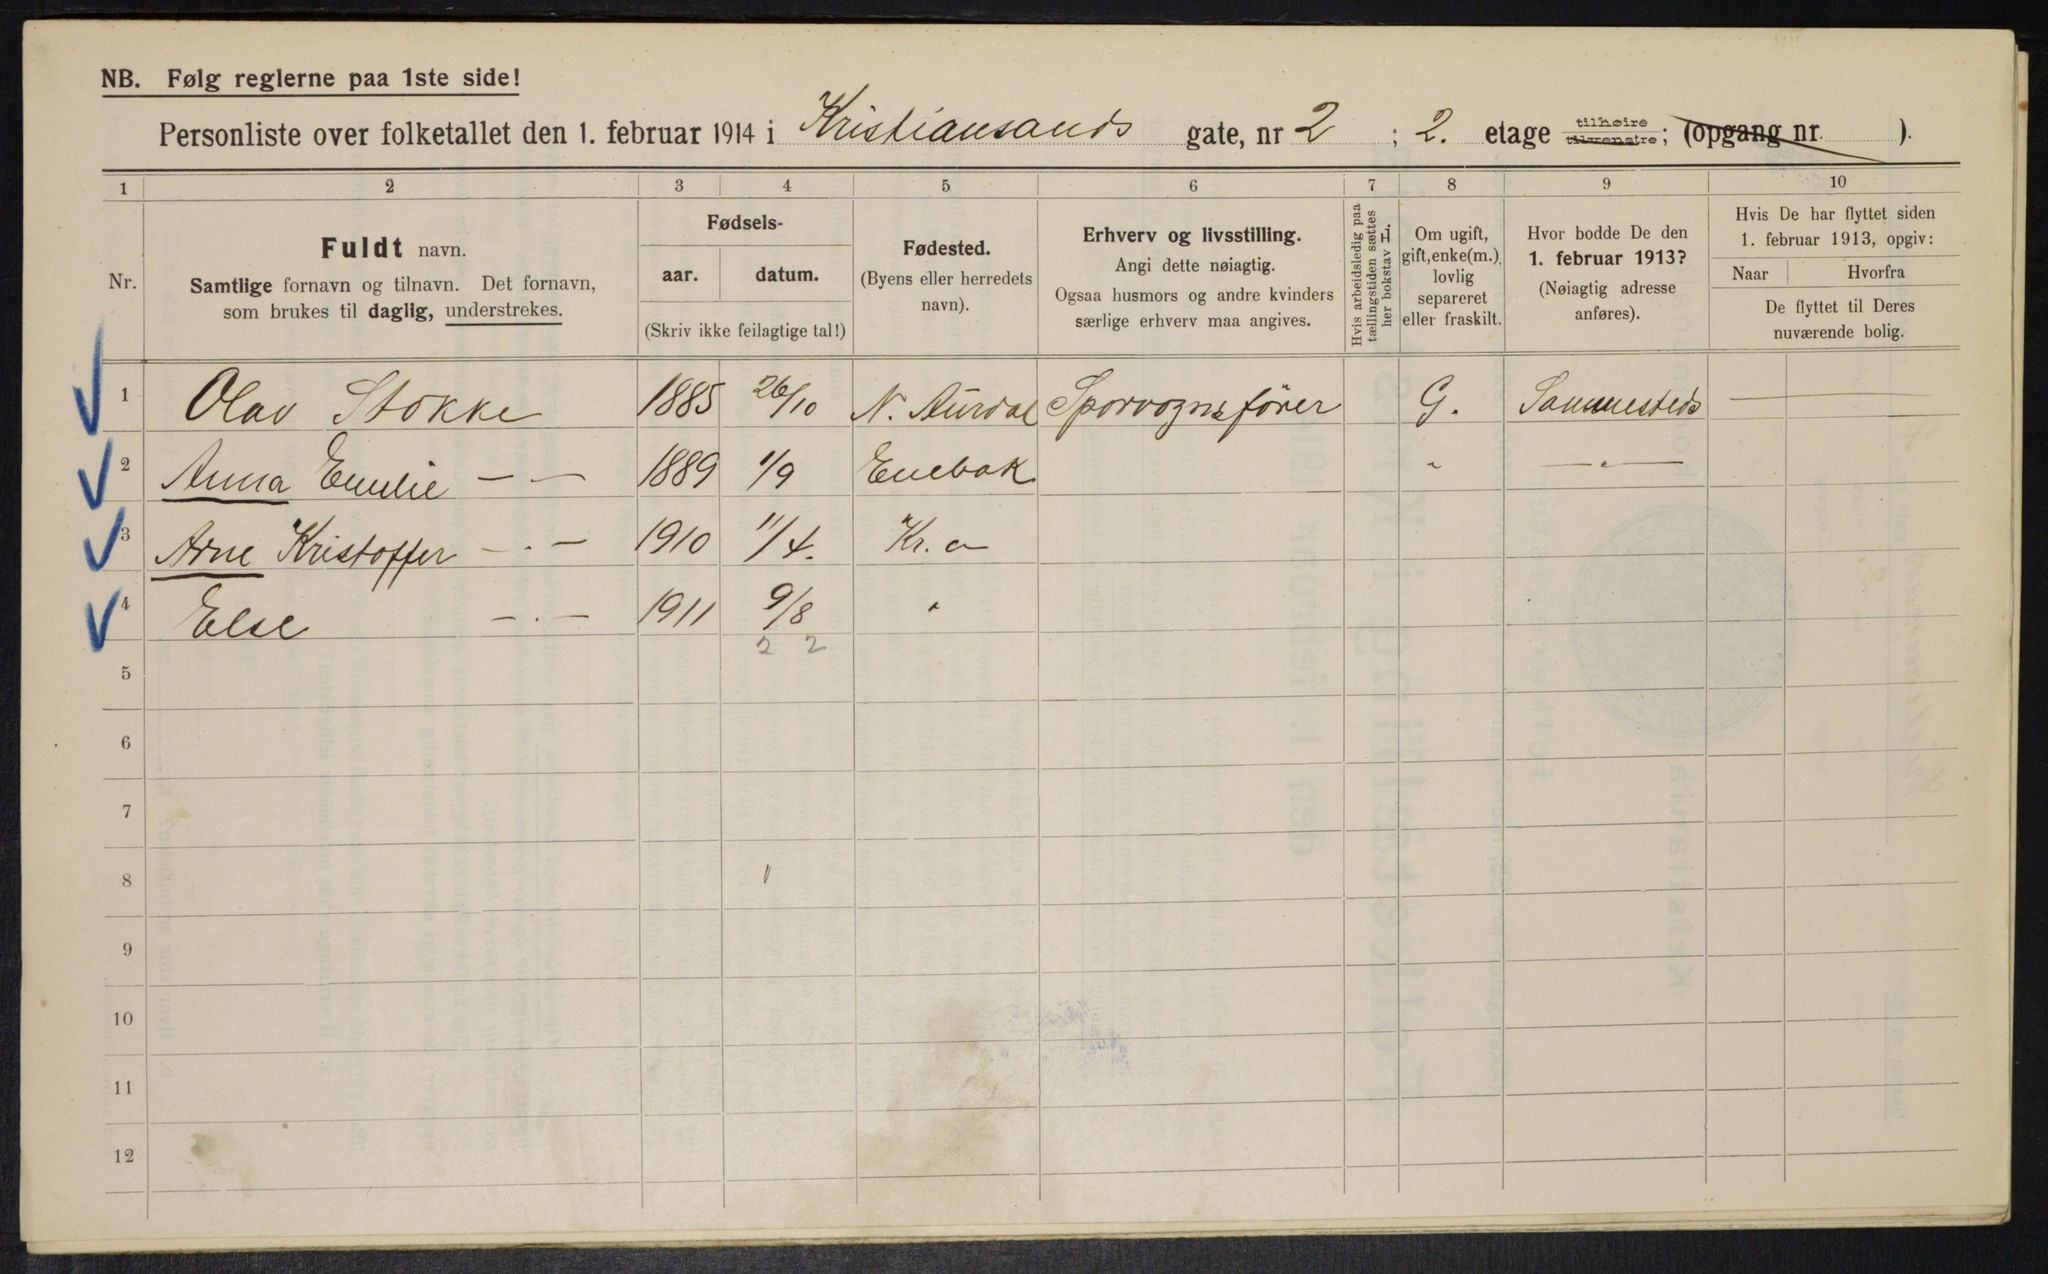 NB. Følg reglerne paa 1ste side!
Personliste over folketallet den 1. februar 1914 i Kristiansands gate, nr 2 ; 2. etage tilhøire tilvenstre; (opgang nr. ).
1 2 3 4 5 6 7 8 9 10
Nr.
Fuldt navn.
Samtlige fornavn og tilnavn. Det fornavn,
som brukes til daglig, understrekes.
Fødsels-
aar. datum.
(Skriv ikke feilagtige tal!)
Fødested.
(Byens eller herredets
navn).
Erhverv og livsstilling.
Angi dette nøiagtig.
Ogsaa husmors og andre kvinders
særlige erhverv maa angives.
Hvis arbeidsledig paa
tællingstiden sættes
her bokstav H.
Om ugift,
gift, enke(m.),
lovlig
separeret
eller fraskilt.
Hvor bodde De den
1. februar 1913?
(Nøiagtig adresse
anføres).
Hvis De har flyttet siden
1. februar 1913, opgiv:
Naar Hvorfra
De flyttet til Deres
nuværende bolig.
1 Olav Stokke 1885 26/10 N. Aurdal Sporvognsfører G. Sammesteds —
2 Anna Emilie — — 1889 1/9 Enebak " — " —
3 Arne Kristoffer — . — 1910 11/4. Kr. a
4 Else — . — 1911 9/8 "
2 2
5
6
7
8
9
10
11
12